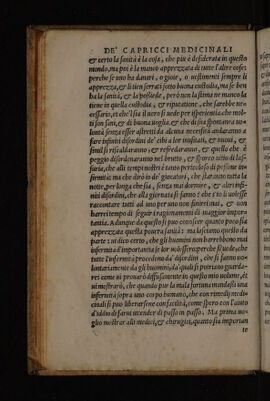 DE' CAPRICCI MEDICINALI
& certo la sanità è la cosa, che più è desiderata in questo
mondo, ma poi è la manco apprezzata di tutte l'altre cose:
perche se uno ha danari, o gioie, o uestimenti sempre li
apprezza, & li tien serrati sotto buona custodia, ma se ben
ha la sanità, & la possede, però non la stima ne manco la
tiene in quella custodia, & riputatione, che sarebbe ne=
cessario, et che'l sia il uero si uede per isperientia che mol=
ti son sani, & di buona uoglia, & che di sua spontanea uo
lontà senza esser astretti da alcuna necessità andaranno a
fare infiniti disordini de' cibi a lor inusitati, & nociui, &
simil si riscaldaranno, & refredaranno, & quello che è
peggio si darderanno nel brutto, & sporco uitio di lus=
suria, che alli tempi nostri è tanto pericoloso di pessime in
firmità: ma che dirò io de giocatori, che staranno tutta la
notte, per longa che sia, senza mai dormire, & altri infi=
niti disordini, che alla giornata si fanno? che s'io li uolesse
raccontare tutti ad uno per uno non finirei mai, & non
harrei tempo di seguir i ragionamenti di maggiore impor=
tantia. Adunque da questo si può conoscer quanto poco sia
apprezzata questa pouera sanità: ma lasciamo questo da
parte: ui dico certo, che gli huomini non harebbono mai
infermità d'importantia se lor uolessero perche si uede, che
tutte l'infermità procedeno da' disordini, che si fanno uo=
lontariamente da gli huomini, da' quali si potriano guarda=
re: come ui prouarò diffusamente in questo mio uolume, &
ui mostrarò, che quando pur la mala fortuna mandasse una
infermità sopra uno corpo humano, che con rimedij medi=
cinali si può liberarsene con facilità, come spero con l'aiuto
d'Iddio di farui intender di passo in passo. Ma prima uo=
glio mostrar alli medici, & chirugici, quanto sia importan
te